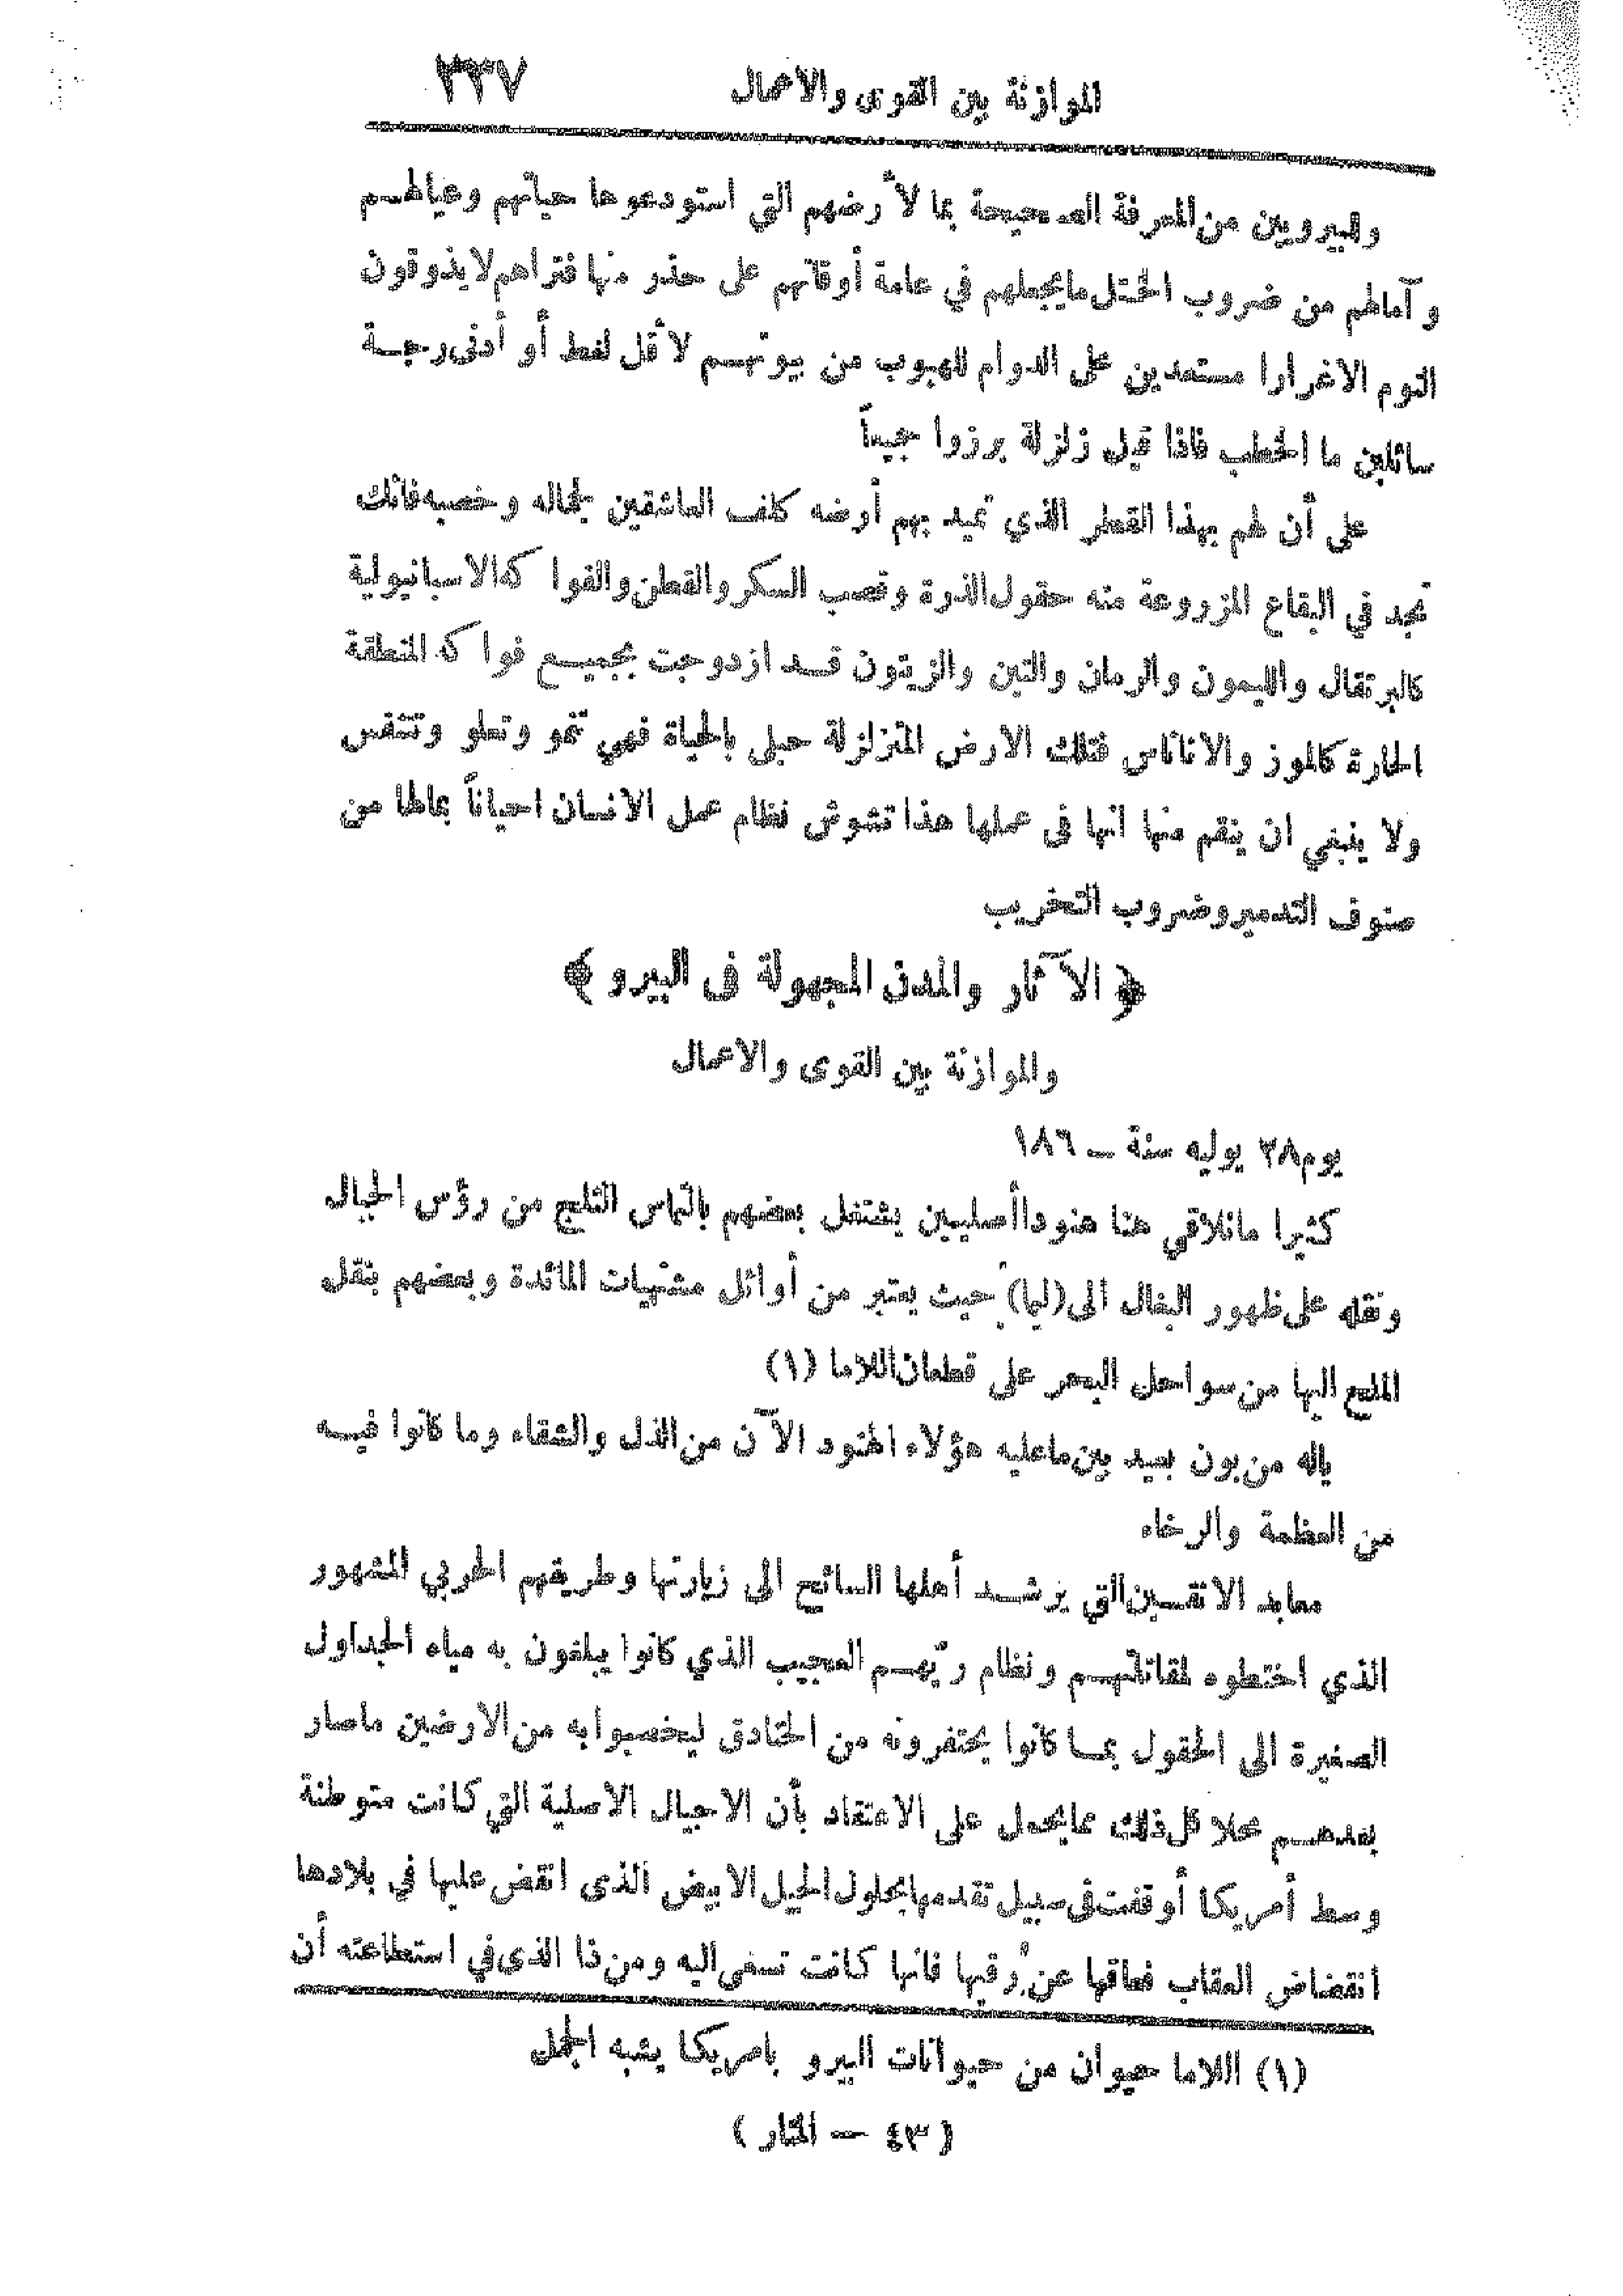 الموازنة بين القوى والاعمال ٣٣٧
وللبيرويين من المعرفة الصحيحة بما لأرضهم التي استودعوها حياتهم وعيالهم
وآمالهم من ضروب الختل ما يجعلهم في عامة أوقاتهم على حذر منها فتراهم لا يذوقون
النوم الا غرارا مستعدين على الدوام للهبوب من بيوتهم لأقل لغط أو أدنى رجة
سائلين ما الخطب فاذا قيل زلزلة برزوا جميعاً
على أن لهم بهذا القطر الذي تميد بهم أرضه كلف العاشقين بجماله وخصبه فانك
تجد في البقاع المزروعة منه حقول الذرة وقصب السكر والقطن والفواكه الاسبانيولية
كالبرتقال والليمون والرمان والتين والزيتون قد ازدوجت بجميع فواكه المنطقة
الحارة كالموز والاناناس فتلك الارض المتزلزلة حبلى بالحياة فهي تنمو وتعلو وتتنفس
ولا ينبغي ان ينقم منها انها فى عملها هذا تشوش نظام عمل الانسان احياناً بمالها من
صنوف التدمير وضروب التخريب
﴿ الآثار والمدن المجهولة فى البيرو ﴾
والموازنة بين القوى والاعمال
يوم ٢٨ يوليه سنة ــ ١٨٦
كثيرا ما نلاقي هنا هنودا أصليين يشتغل بعضهم بالتماس الثلج من رؤس الجبال
ونقله على ظهور البغال الى (ليما) حيث يعتبر من أوائل مشتهيات المائدة وبعضهم بنقل
الملح اليها من سواحل البحر على قطعان اللاما (١)
ياله من بون بعيد بين ما عليه هؤلاء الهنود الآن من الذل والشقاء وما كانوا فيه
من العظمة والرخاء
معابد الانقسين التي يرشد أهلها السائح الى زيارتها وطريقهم الحربي المشهور
الذي اختطوه لمقاتلتهم ونظام ريّهم العجيب الذي كانوا يبلغون به مياه الجداول
الصغيرة الى الحقول بما كانوا يحتفرونه من الخنادق ليخصبوا به من الارضين ما صار
بعدهم محلا كل ذلك مما يحمل على الاعتقاد بأن الاجيال الاصلية التي كانت متوطنة
وسط أمريكا أوقفت فى سبيل تقدمها بحلول الجيل الابيض الذى انقض عليها في بلادها
انقضاض العقاب فعاقها عن رُقيها فانها كانت تسعى اليه ومن ذا الذى في استطاعته أن
(١) اللاما حيوان من حيوانات البيرو بامريكا يشبه الجمل
(٤٣ — المنار)